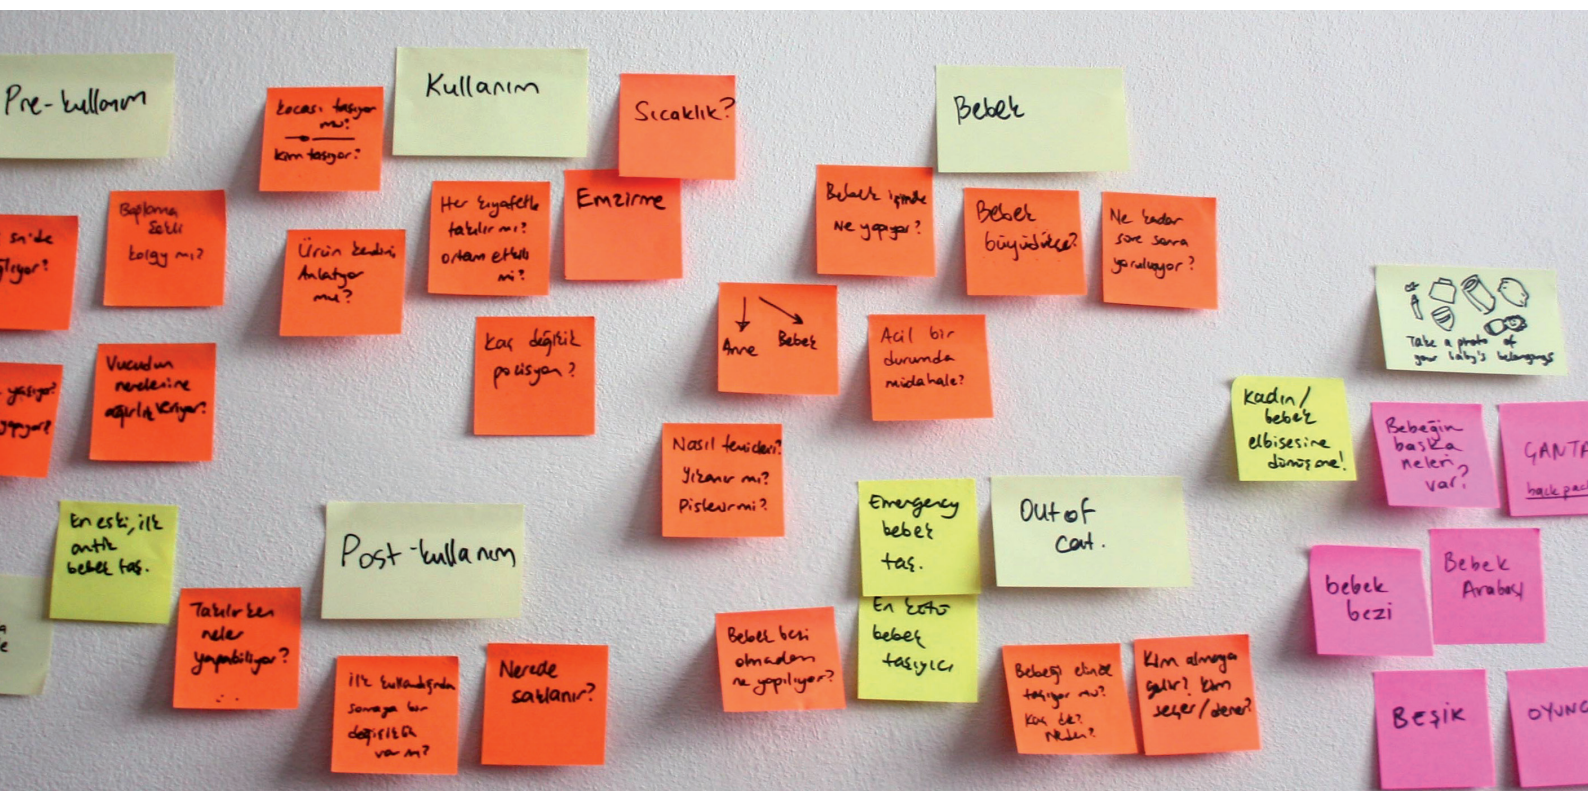 Pre-kullanım
kocası taşıyor
mu?
kim taşıyor?
Kullanım
Sıcaklık?
Bebek
sn'de
Bağlama
şekli
kolay mı?
Ürün kendini
Anlatıyor
mu?
Her kıyafetle
takılır mı?
ortam etkili
mi?
Emzirme
Bebek içinde
Ne yapıyor?
Bebek
büyüdükçe?
Ne kadar
süre sonra
yoruluyor?
yaşıyor?
yapıyor?
Vucudun
nerelerine
ağırlık veriyor?
Kaç değişik
pozisyon?
Anne
Bebek
Acil bir
durumda
müdahale?
Take a photo of
your baby's belongings
Nasıl temizlenir?
Yıkanır mı?
Pislenir mi?
Kadın/
bebek
elbisesine
dönüşme!
Bebeğin
başka
neleri
var?
ÇANTA
backpack
En eski, ilk
antik
bebek taş.
Post-kullanım
Emergency
bebek
taş.
Out of
cat.
En kötü
bebek
taşıyıcı
Takılırken
neler
yapabiliyor?
ilk kullandığında
sonraya bir
değişiklik
var mı?
Nerede
saklanır?
Bebek bezi
olmadan
ne yapılıyor?
Bebeği elinde
taşıyor mu?
Kaç dk?
Neden?
Kim almaya
gelir? Kim
seçer/dener?
bebek
bezi
Bebek
Arabası
BEŞİK
OYUNC